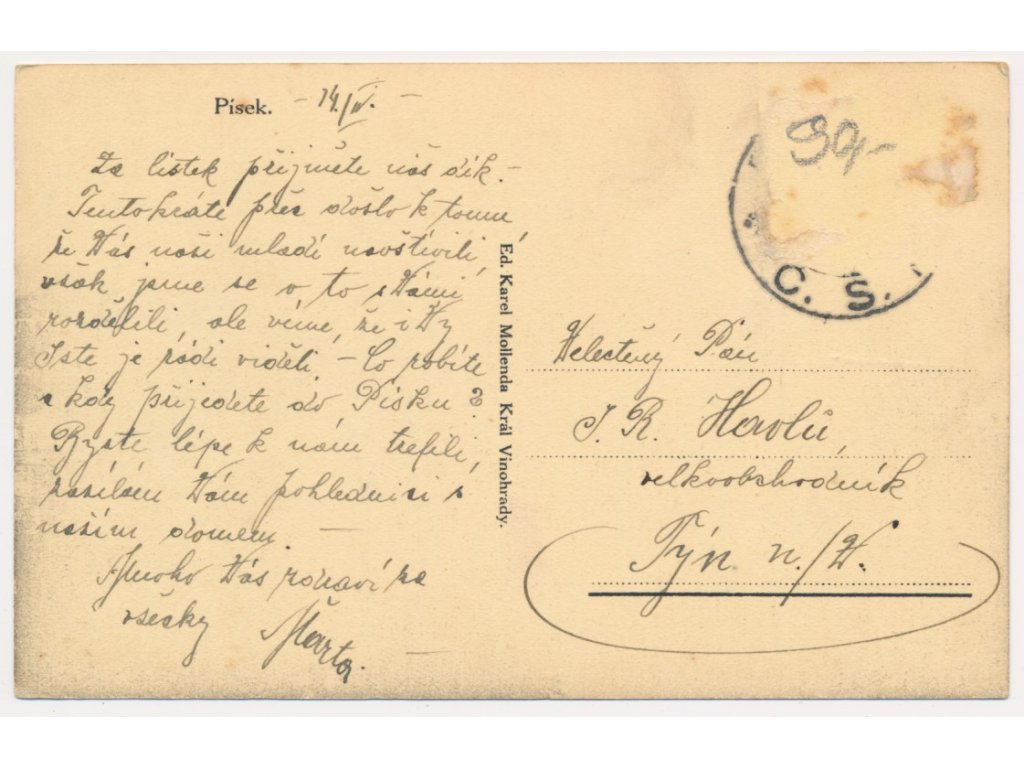 Písek. - 14./IV. -
Za lístek přijměte náš dík. -
Tentokráte přec došlo k tomu
že Vás naši mladí navštívili,
však jsme se o to s Vámi
rozdělili, ale víme, že i Vy
jste je rádi viděli - Co robíte
a kdy přijedete do Písku?
Byste lépe k nám trefili,
zasílám Vám pohlednici s
naším domem. -
Mnoho Vás zdraví za
všecky Marta. -
Ed. Karel Mollenda Král Vinohrady.
90,-
C. S.
Velectěný Pán
J. R. Havlů,
velkoobchodník
Týn n./V.